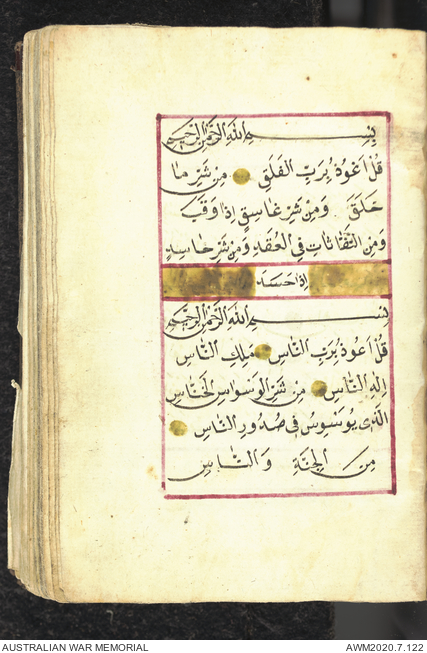 بِسْمِ اللّٰهِ الرَّحْمٰنِ الرَّحِيمِ
قُلْ اَعُوذُ بِرَبِّ الْفَلَقِ مِنْ شَرِّ مَا
خَلَقَ وَمِنْ شَرِّ غَاسِقٍ اِذَا وَقَبَ
وَمِنْ شَرِّ النَّفَّاثَاتِ فِي الْعُقَدِ وَمِنْ شَرِّ حَاسِدٍ
اِذَا حَسَدَ
بِسْمِ اللّٰهِ الرَّحْمٰنِ الرَّحِيمِ
قُلْ اَعُوذُ بِرَبِّ النَّاسِ مَلِكِ النَّاسِ
اِلٰهِ النَّاسِ مِنْ شَرِّ الْوَسْوَاسِ الْخَنَّاسِ
الَّذِى يُوَسْوِسُ فِى صُدُورِ النَّاسِ
مِنَ الْجِنَّةِ وَالنَّاسِ
AUSTRALIAN WAR MEMORIAL AWM2020.7.122